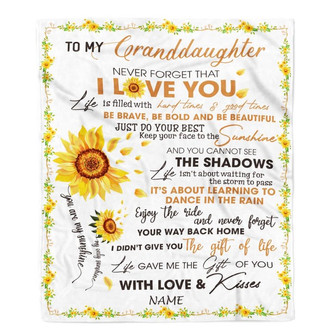 TO MY Granddaughter
NEVER FORGET THAT
I LOVE YOU
Life is filled with hard times & good times
BE BRAVE, BE BOLD AND BE BEAUTIFUL
JUST DO YOUR BEST
Keep your face to the Sunshine
AND YOU CANNOT SEE
THE SHADOWS
Life isn't about waiting for
the storm to pass
IT'S ABOUT LEARNING TO
DANCE IN THE RAIN
Enjoy the ride
and never forget
YOUR WAY BACK HOME
I DIDN'T GIVE YOU The gift of life
Life GAVE ME THE Gift OF YOU
WITH LOVE & Kisses
NAME
you are my sunshine
my only sunshine